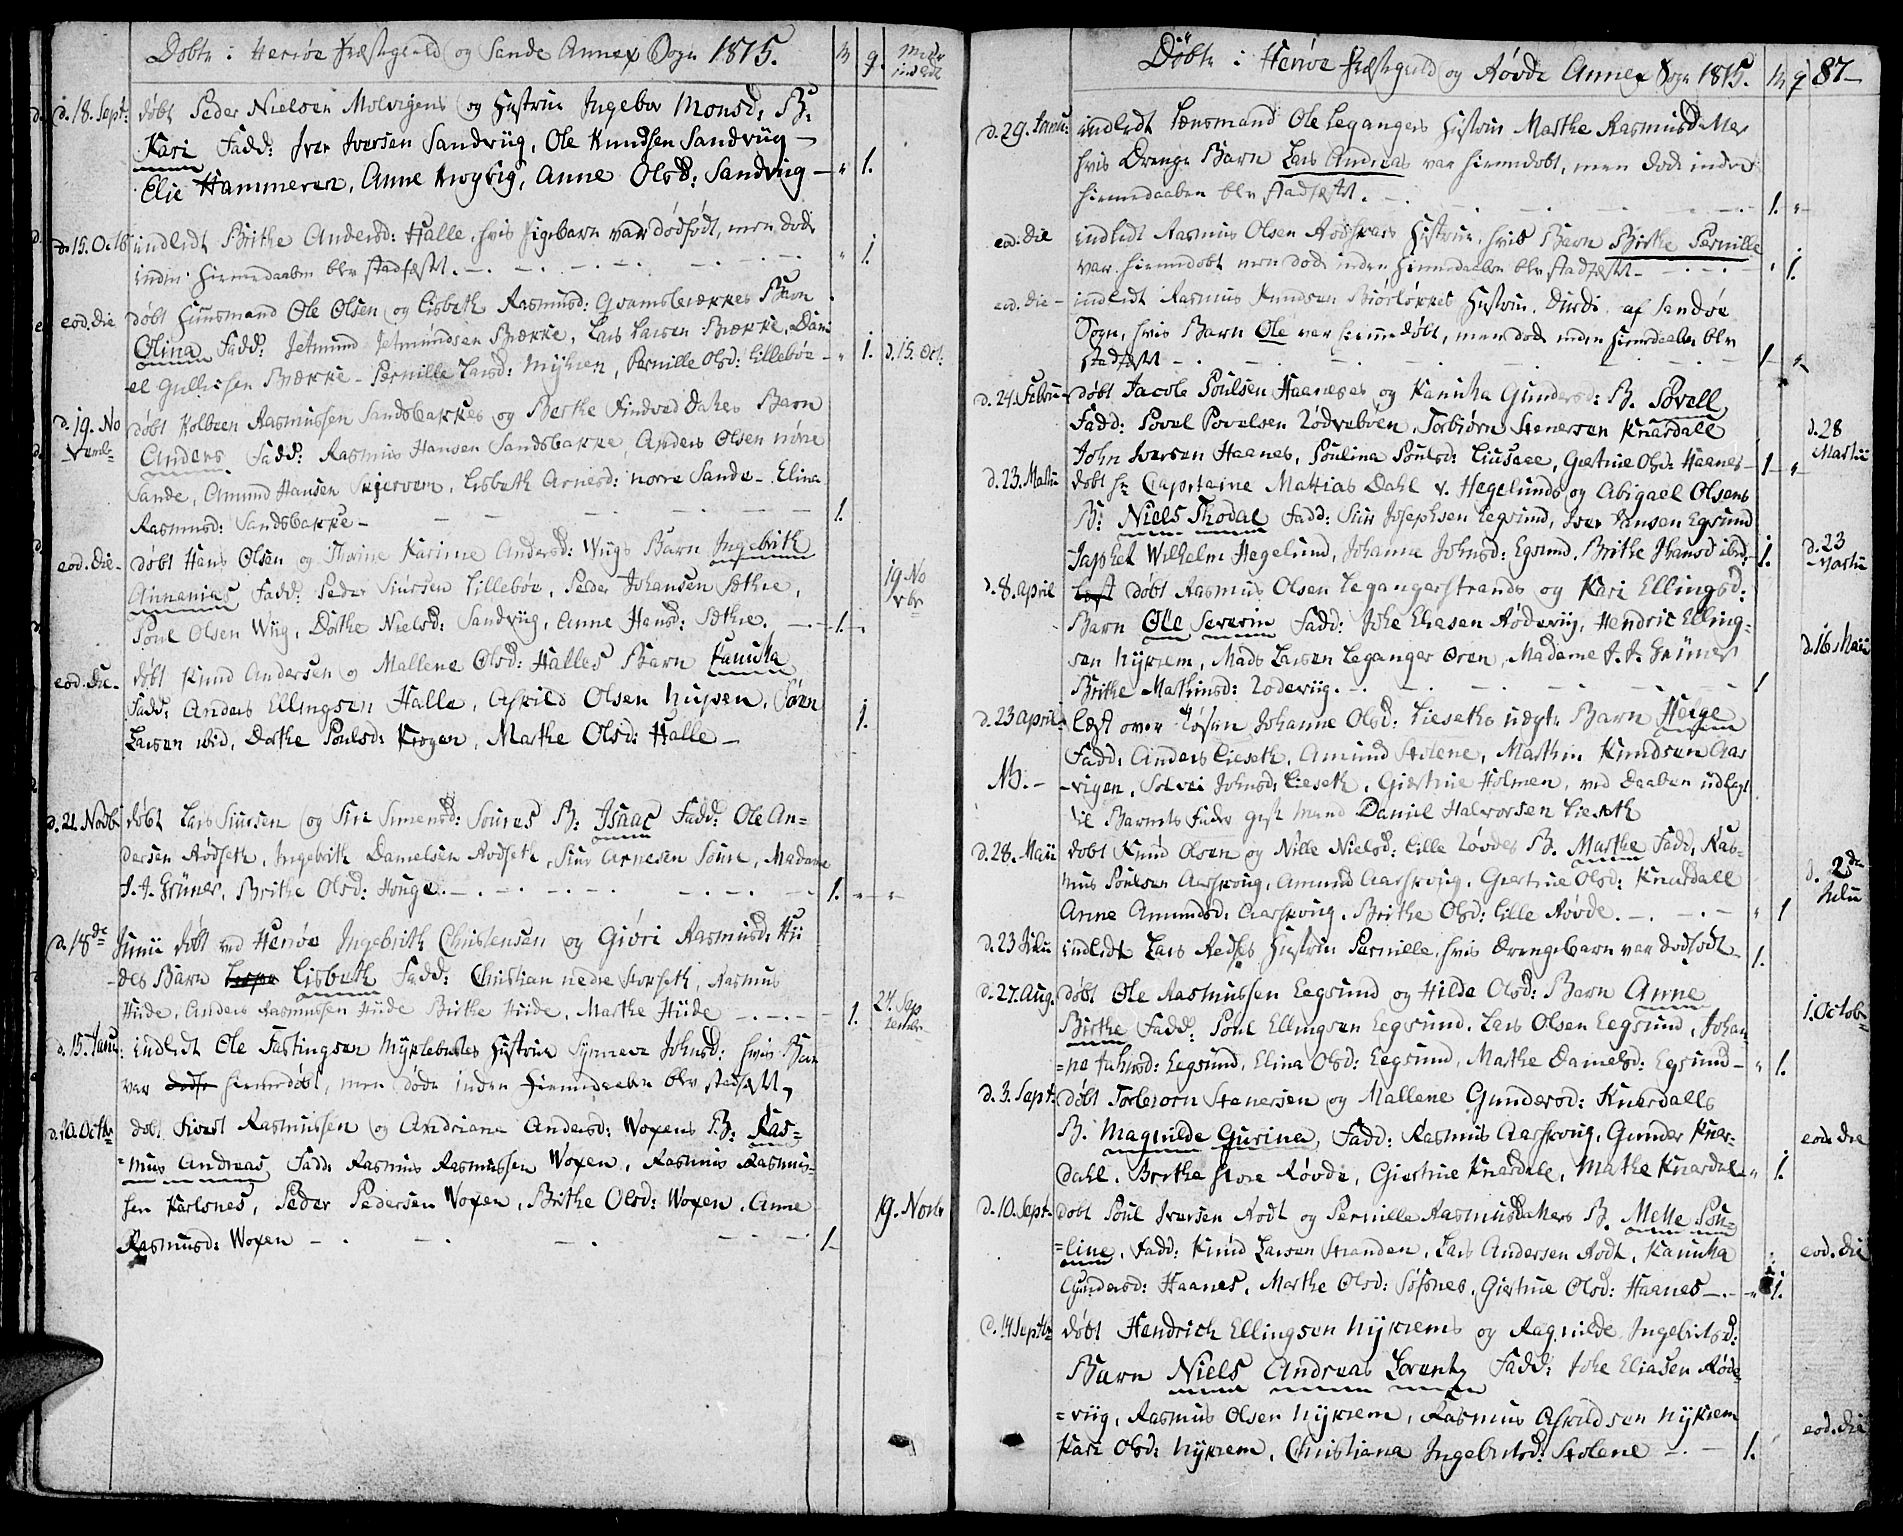 Døbte i Herrøe Præstegield og Sande Annex Sogn 1815.
d. 18. Sept: døbt Peder Nielsen Molvigens og Hustrue Ingebor Monsd: B:
Kari Fadd: Iver Iversen Sandviig, Ole Knudsen Sandviig –
Elie Hammeren, Anne, Anne Olsd: Sandviig – " 1.
d. 15. Octb indledt Brithe Andersd: Halle, hvis Pigebarn var dødfødt, men døde
inden Hiemedaaben blev stadfæstet. " 1.
eod. die døbt Huusmand Ole Olsen og Lisbeth Rasmusd: Gramsbrækkes Barn
Olina Fadd: Jetmund Jetmundsen Brække, Lars Larsen Brække, Dani
el Gullichsen Brække – Pernille Larsd: Myhren, Pernille Olsd: Lillebøe – " 1. d. 15. Oct.
d. 19. No
vemb døbt Kolbeen Rasmussen Sandsbakkes og Berthe Findsd: Barn
Anders Fadd: Rasmus Hansen Sandsbakke, Anders Olsen nørre
Sande, Amund Hansen Skjerven, Lisbeth Arnesd: norre Sande – Elina
Rasmusd: Sandsbakke – 1.
eod. die – døbt Hans Olsen og Thorine Karine Andersd: Wiigs Barn Ingebrith
Annanias Fadd: Peder Siursen Lillebøe, Peder Johansen Sæthre,
Poul Olsen Wiig, Dorthe Nielsd: Sandviig, Anne Hansd: Sæthre. 1. 19 No
vbr
eod. die – døbt Knud Andersen og Mallene Olsd: Halles Barn Kanutta
Fadd: Anders Ellingsen Halle, Askild Olsen Hujsen, Søren
Larsen ibid, Dorthe Poulsd: Krogen, Marthe Olsd: Halle – 1.
d. 21. Novbr døbt Lars Siursen og Siri Simensd: Soures B: Isaac Fadd: Ole An=
dersen Rødseth, Ingebrith Danielsen Rodseth, Siur Arnesen Soure, Madame
J. A. Grüner, Brithe Olsd: Houge. 1. " "
d. 18de Junii døbt ved Herrøe Ingebrith Christensen og Giøri Rasmusd: Hii
des Barn Lisbeth Fadd: Christian nedre Storseth, Rasmus
Hiide, Anders Rasmussen Hiide Brithe Hiide, Marthe Hiide 1. 24. Sep
tembr
d. 15. Janu: indledt Ole Fastingsen Myklebustes Hustrue Synneve Johnsd: hvis Barn
var hiemedøbt, men døde inden Hiemedaaben blev stadfæstet,
d. 10. Octbr døbt Sivert Rasmussen og Andriane Andersd: Woxens B: Ras=
=mus Andreas Fadd: Rasmus Rasmussen Woxen, Rasmus Rasmus=
sen Karlsnes, Peder Pedersen Woxen, Brithe Olsd: Woxen, Anne
Rasmusd: Woxen – 1. 19. Novbr
Døbte i Herrøe Præstegield og Røvde Annex Sogn 1815. M q 87
d. 29. Janu: indledt Lensmand Ole Legangers Hustrue Marthe Rasmusd
hvis Drenge Barn Lars Andreas var hiemedøbt, men døde inden
hiemedaaben blev stadfæstet. 1. "
eod: die indledt Rasmus Olsen Rødskars Hustrue, hvis Barn Birthe Pernille
var hiemedøbt men døde inden Hiemedaaben blev stadfæstet " 1.
eod. die – indledt Rasmus Knudsen Hustrue Durdi af Sandøe
Sogn, hvis Barn Ole var hiemedøbt, men døde inden hiemedaaben blev
stadfæstet 1 "
d. 24. Febru døbt Jacob Poulsen Haaneses og Kanutta Gundersd: B. Povell
Fadd: Povel Povelsen Rødvebven, Torbiørn Stenersen Knardall
John Iversen Haanes, Poulina Poulsd: Liusaae, Giertrue Olsd: Haanes – 1 " d. 28
Martii
d. 23. Martii døbt Hr Capitaine Mattias Dahl v. Hegelunds og Abigael Olsens
B: Niels Thodal Fadd: Siur Josephsen Eegsund, Iver Hansen Egsund
Japhet Wilhelm Hegelund, Johanne Johnsd: Egsund, Brithe Hansd ibid: 1. d. 23
Martii
d. 8. April døbt Rasmus Olsen Legangerstrands og Kari Ellingsd:
Barn Ole Severin Fadd: Johe Eliasen Rødeviig, Hendric Elling=
sen Nykrem, Mads Larsen Leganger Øren, Madame J. A. Grüner
Brithe Mathiasd: Rodeviig. 1 d. 16 Maii
d. 23 April læst over Løsen Johanne Olsd: Lieseths uægte Barn Helge
Fadd: Anders Lieseth, Amund Stolene, Marthin Knudsen Aar
NB. – vigen, Solvei Johnsd: Lieseth, Giertrue Holmen, ved Daaben udlagt
til Barnets Fader gift Mand Daniel Halvorsen Lieseth
d. 28. Maii døbt Knud Olsen og Nille Nielsd: Lille Rovdes B. Marthe Fadd: Ras=
mus Poulsen Aarskoug, Amund Aarskoug, Giertrue Olsd: Knardall
Anne Amundsd: Aarskoug. Brithe Olsd: Lille Røvde. " 1 d. 2den
Julii
d. 23 Julii indledt Lars Hustrue Pernille, hvis Drengebarn var dødfødt 1.
d. 27. Aug. døbt Ole Rasmussen Eegsund og Hilde Olsd: Barn Anne
Birthe Fadd: Poul Ellingsen Eegsund, Lars Olsen Eegsund, Johan=
=ne Johnsd: Eegsund, Elina Olsd: Eegsund, Marthe Danielsd: Egsund – " 1. 1. Octobr
d. 3. Sept: døbt Torbiørn Stenersen og Mallene Gundersd: Knardalls
B. Magnilde Gurina, Fadd: Rasmus Aarskoug, Gunder Knar=
dahl, Brithe store Røvde, Giertrue Knardale, Marthe Knardale " 1. eod: die
d. 10. Sept: døbt Poul Iversen Rødt og Pernille Rasmusd B. Mette Pou=
=line, Fadd: Knud Larsen Stranden, Lars Andersen Rodt, Kanutta
Gundersd: Haanes, Marthe Olsd: Søfsnes, Giertrue Olsd: Haanes – " 1. eod. die
d. 14 Septbr døbt Hendrich Ellingsen Nykrems og Ragnilde Ingebritsd:
Barn Niels Andreas Lorentz Fadd: Johe Eliasen Røde=
=viig, Rasmus Olsen Nykrem, Rasmus Askildsen Nykrem
Kari Olsd: Nykrem, Christiana Ingebritsd: Stolene – 1. eod. die